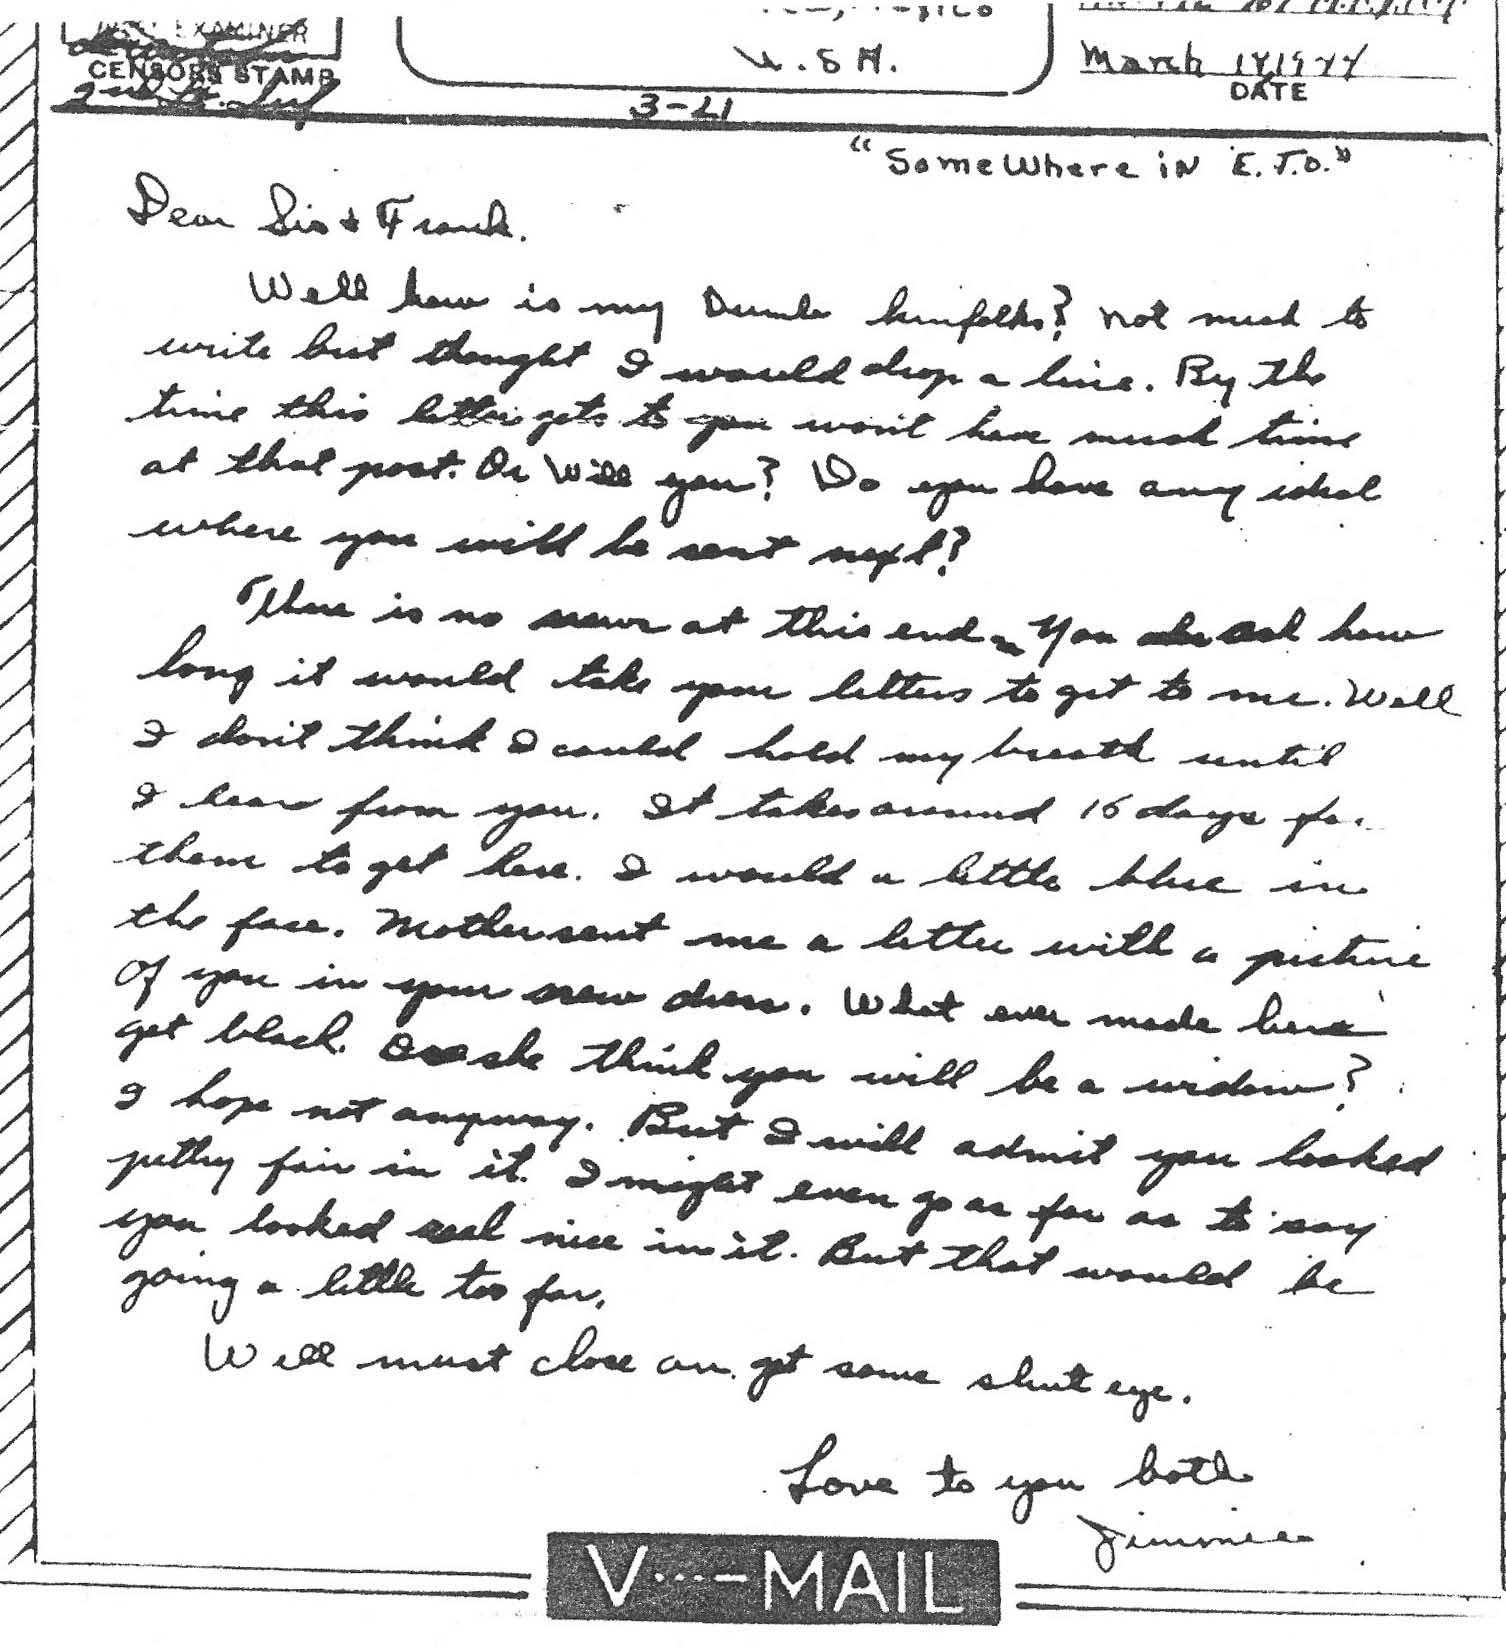 EXAMINER
CENSOR'S STAMP
2nd Lt. Inf
U.S.A.
March 1944
DATE
3-21
"SomeWhere iN E.T.O."
Dear Sis & Frank.
Well how is my Dumb kinfolks? Not much to
write but thought I would drop a line. By the
time this letter gets to you won't have much time
at that post. Or Will you? Do you have any ideal
where you will be sent next?
There is no news at this end. You ask how
long it would take your letters to get to me. Well
I don't think I could hold my breath until
I hear from you. It takes around 16 days for
them to get here. I would a little blue in
the face. Mother sent me a letter with a picture
of you in your new dress. What ever made here
get black. Does she think you will be a widow?
I hope not anyway. But I will admit you looked
pethy fair in it. I might even go as far as to say
you looked real nice in it. But that would be
going a little too far.
Well must close an get some shut eye.
Love to you both
Jimmie
V···—MAIL